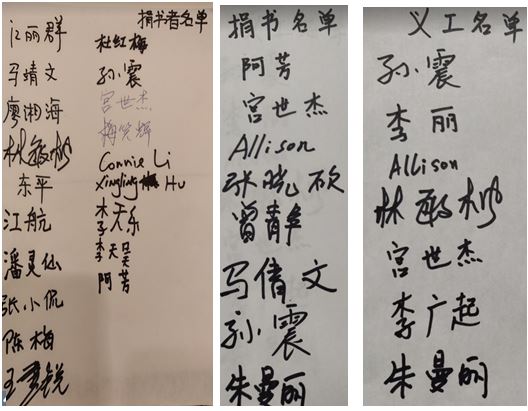 捐书者名单
江丽群
马靖文
廖湘海
林敏彬
东平
江航
潘灵仙
张小侃
陈梅
杜红梅
孙震
宫世杰
梅笑辉
Connie Li
Xingling Hu
李天乐
李天昊
阿芳
捐书名单
阿芳
宫世杰
Allison
张晓砍
曾静
马倩文
孙震
朱曼丽
义工名单
孙震
李丽
Allison
林敏彬
宫世杰
李广起
朱曼丽